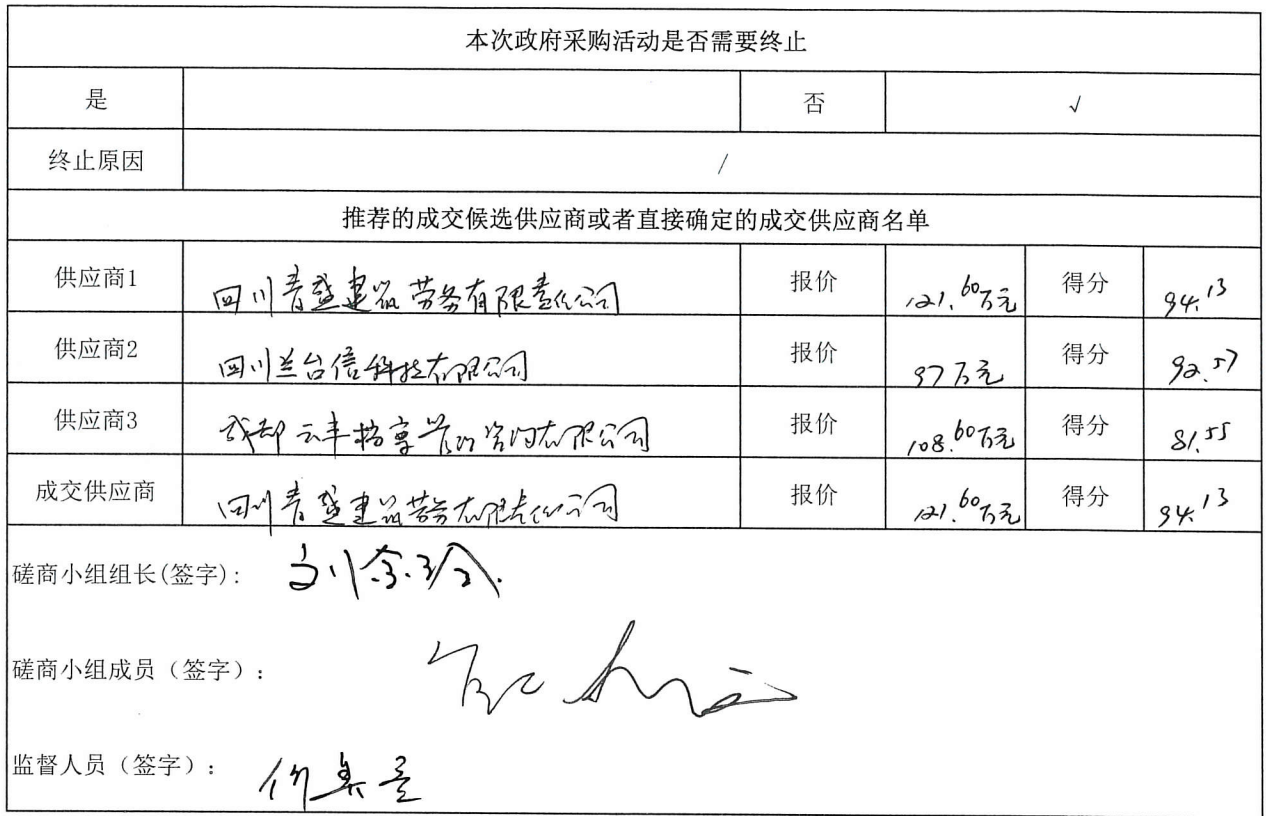 本次政府采购活动是否需要终止
是 否 √
终止原因 /
推荐的成交候选供应商或者直接确定的成交供应商名单
供应商1 四川青盛建筑劳务有限责任公司 报价 121.60万元 得分 94.13
供应商2 四川兰台信科技有限公司 报价 97万元 得分 92.57
供应商3 成都云丰档享 咨询有限公司 报价 108.60万元 得分 81.55
成交供应商 四川青盛建筑劳务有限责任公司 报价 121.60万元 得分 94.13
磋商小组组长(签字):
磋商小组成员（签字）:
监督人员（签字）: